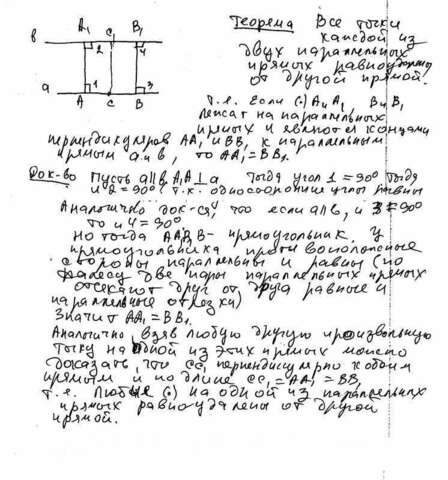 A₁ C₁ B₁
в 2 4
а 1 3
A C B
Теорема Все точки
каждой из
двух параллельных
прямых равноудалены
от другой прямой.
т.е. Если (·) A и A₁, B и B₁
лежат на параллельных
прямых и являются концами
перпендикуляров AA₁ и BB₁ к параллельным
прямым а и в, то AA₁ = BB₁.
Док-во Пусть a∥b A₁A⊥a Тогда угол 1 = 90° тогда
и 2 = 90° т.к. односторонние углы равны
Аналогично док-ся, что если a∥b, и 3 = 90°
то и 4 = 90°
Но тогда AA₁B₁B - прямоугольник. У
прямоугольника противоположные
стороны параллельны и равны (по
Фалесу две пары параллельных прямых
отсекают друг от друга равные и
параллельные отрезки)
Значит AA₁ = BB₁.
Аналогично взяв любую другую произвольную
точку на одной из этих прямых можно
доказать, что CC₁ перпендикулярно к обоим
прямым и по длине CC₁ = AA₁ = BB₁
т.е. Любые (·) на одной из параллельных
прямых равноудалены от другой
прямой.